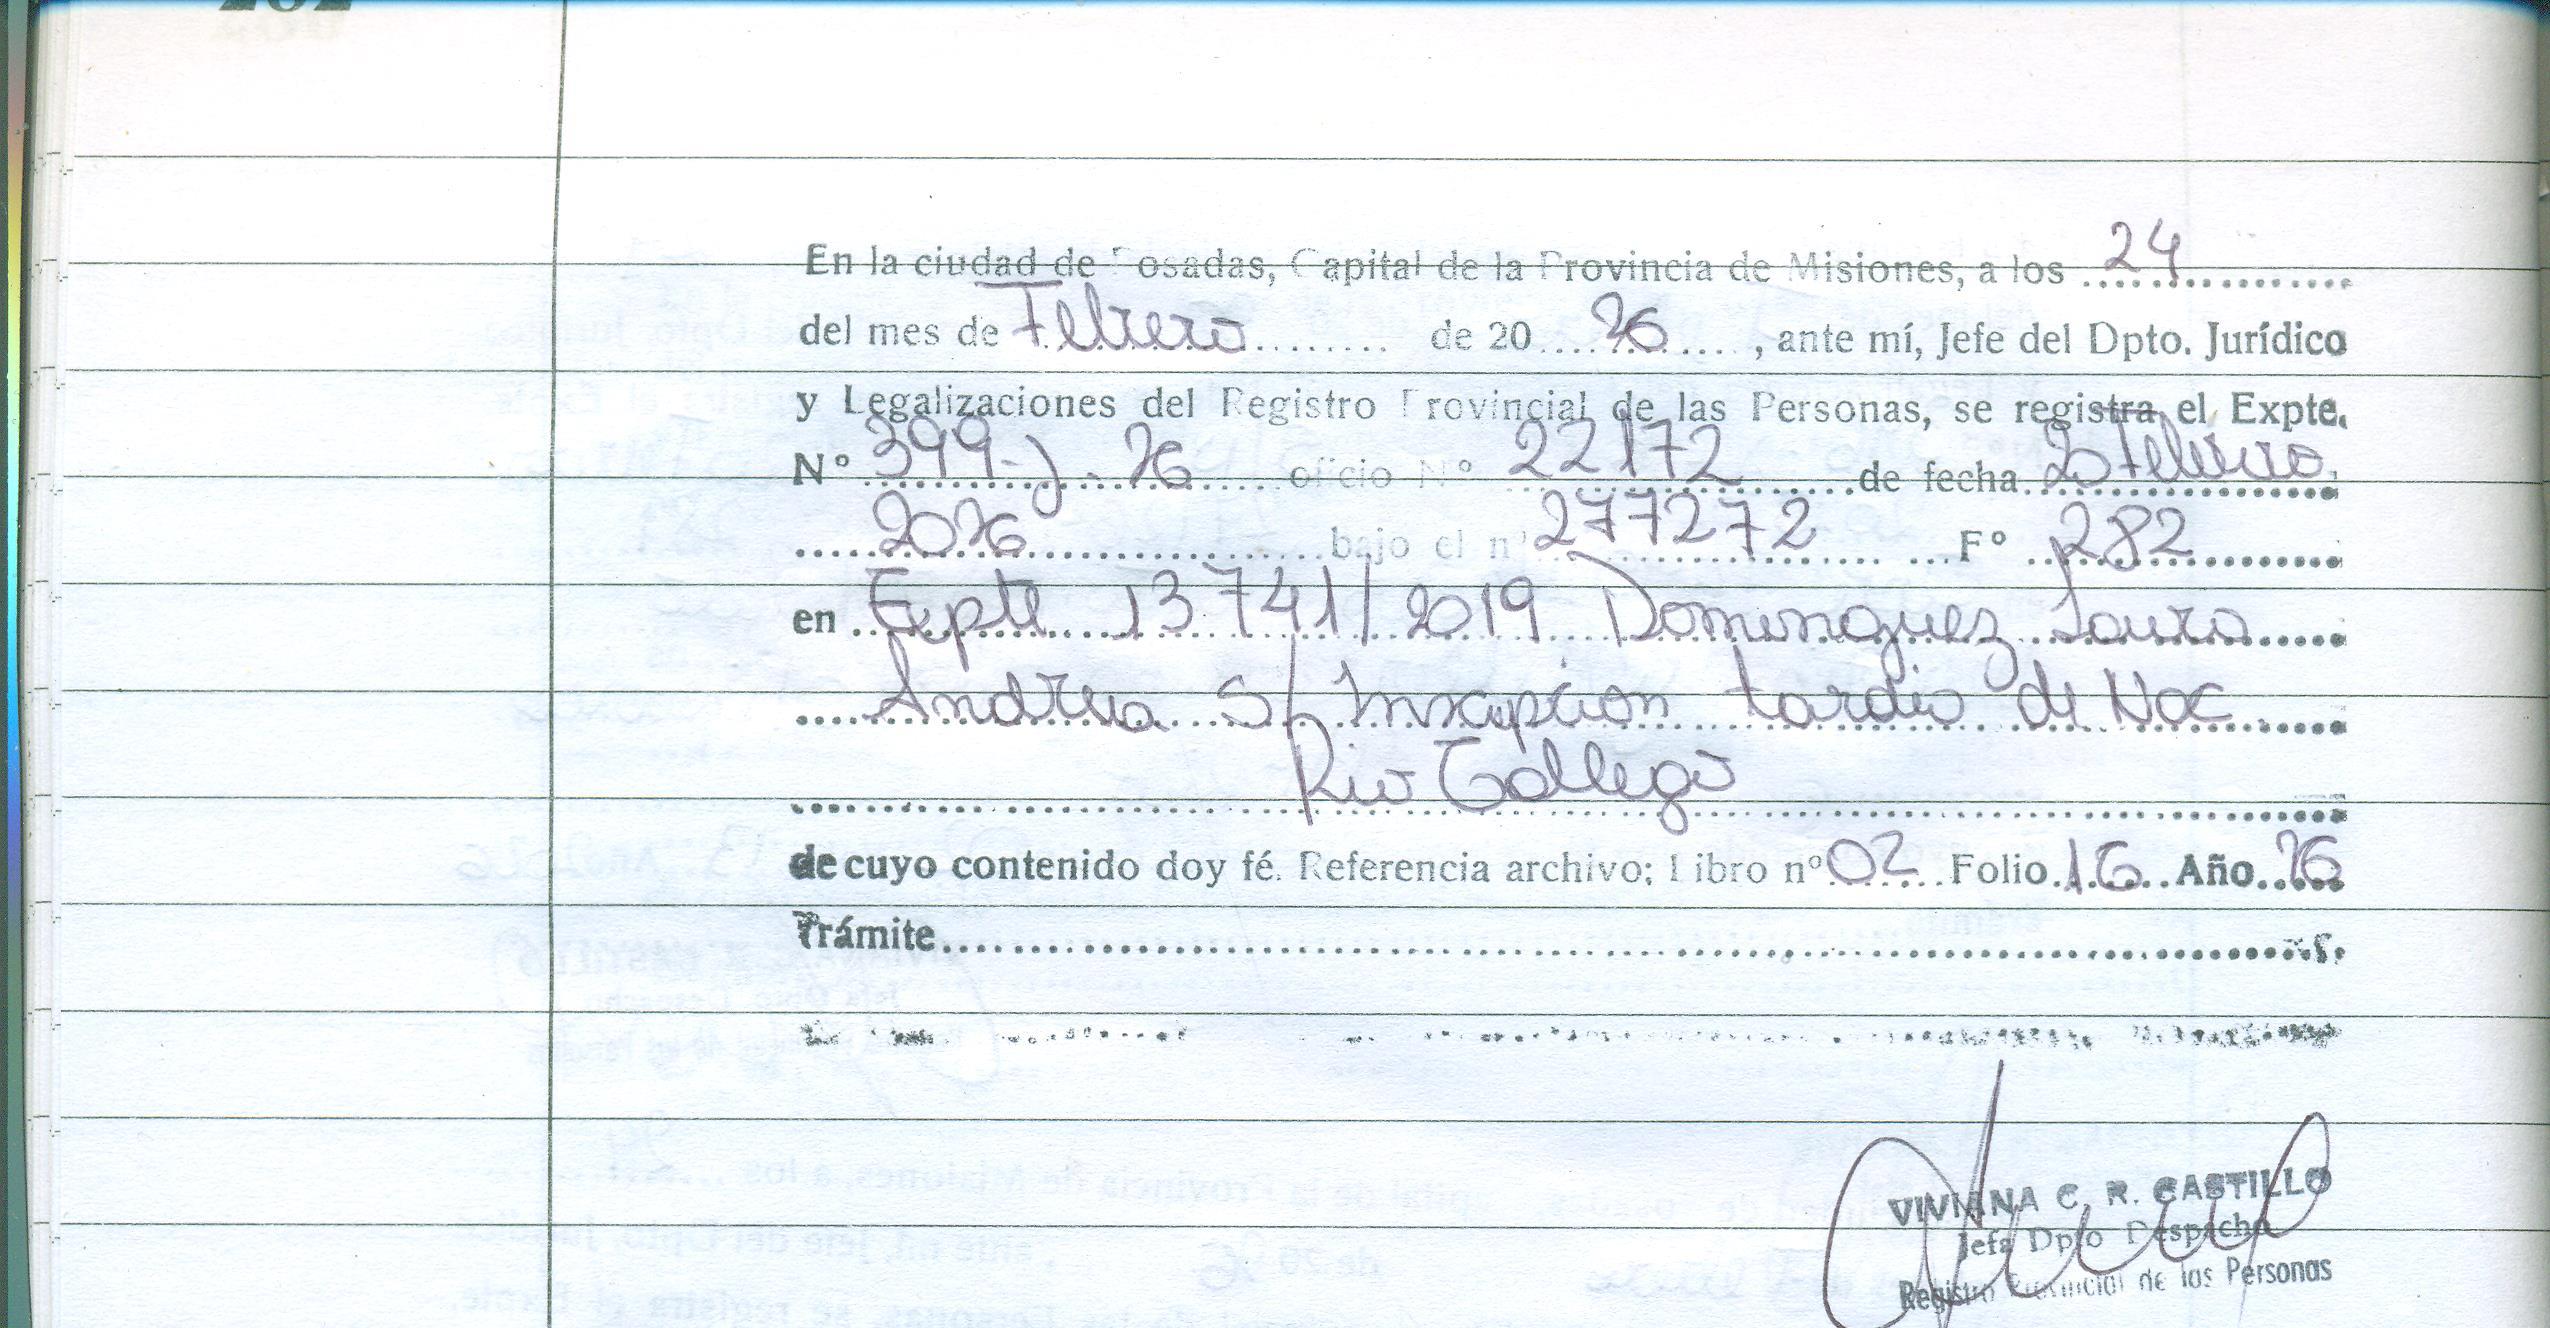 282
En la ciudad de Posadas, Capital de la Provincia de Misiones, a los 24
del mes de Febrero de 20 26, ante mí, Jefe del Dpto. Jurídico
y Legalizaciones del Registro Provincial de las Personas, se registra el Expte.
Nº 399-J-26 oficio Nº 22172 de fecha 20 Febrero
2026 bajo el nº 277272 Fº 282
en Expte 13741/2019 Dominguez Laura
Andrea S/ Inscripcion tardia de Nac
Rio Gallego
de cuyo contenido doy fé. Referencia archivo; Libro nº 02 Folio 16 Año 26
Trámite
VIVIANA C. R. CASTILLO
Jefa Dpto Despacho
Registro Provincial de las Personas